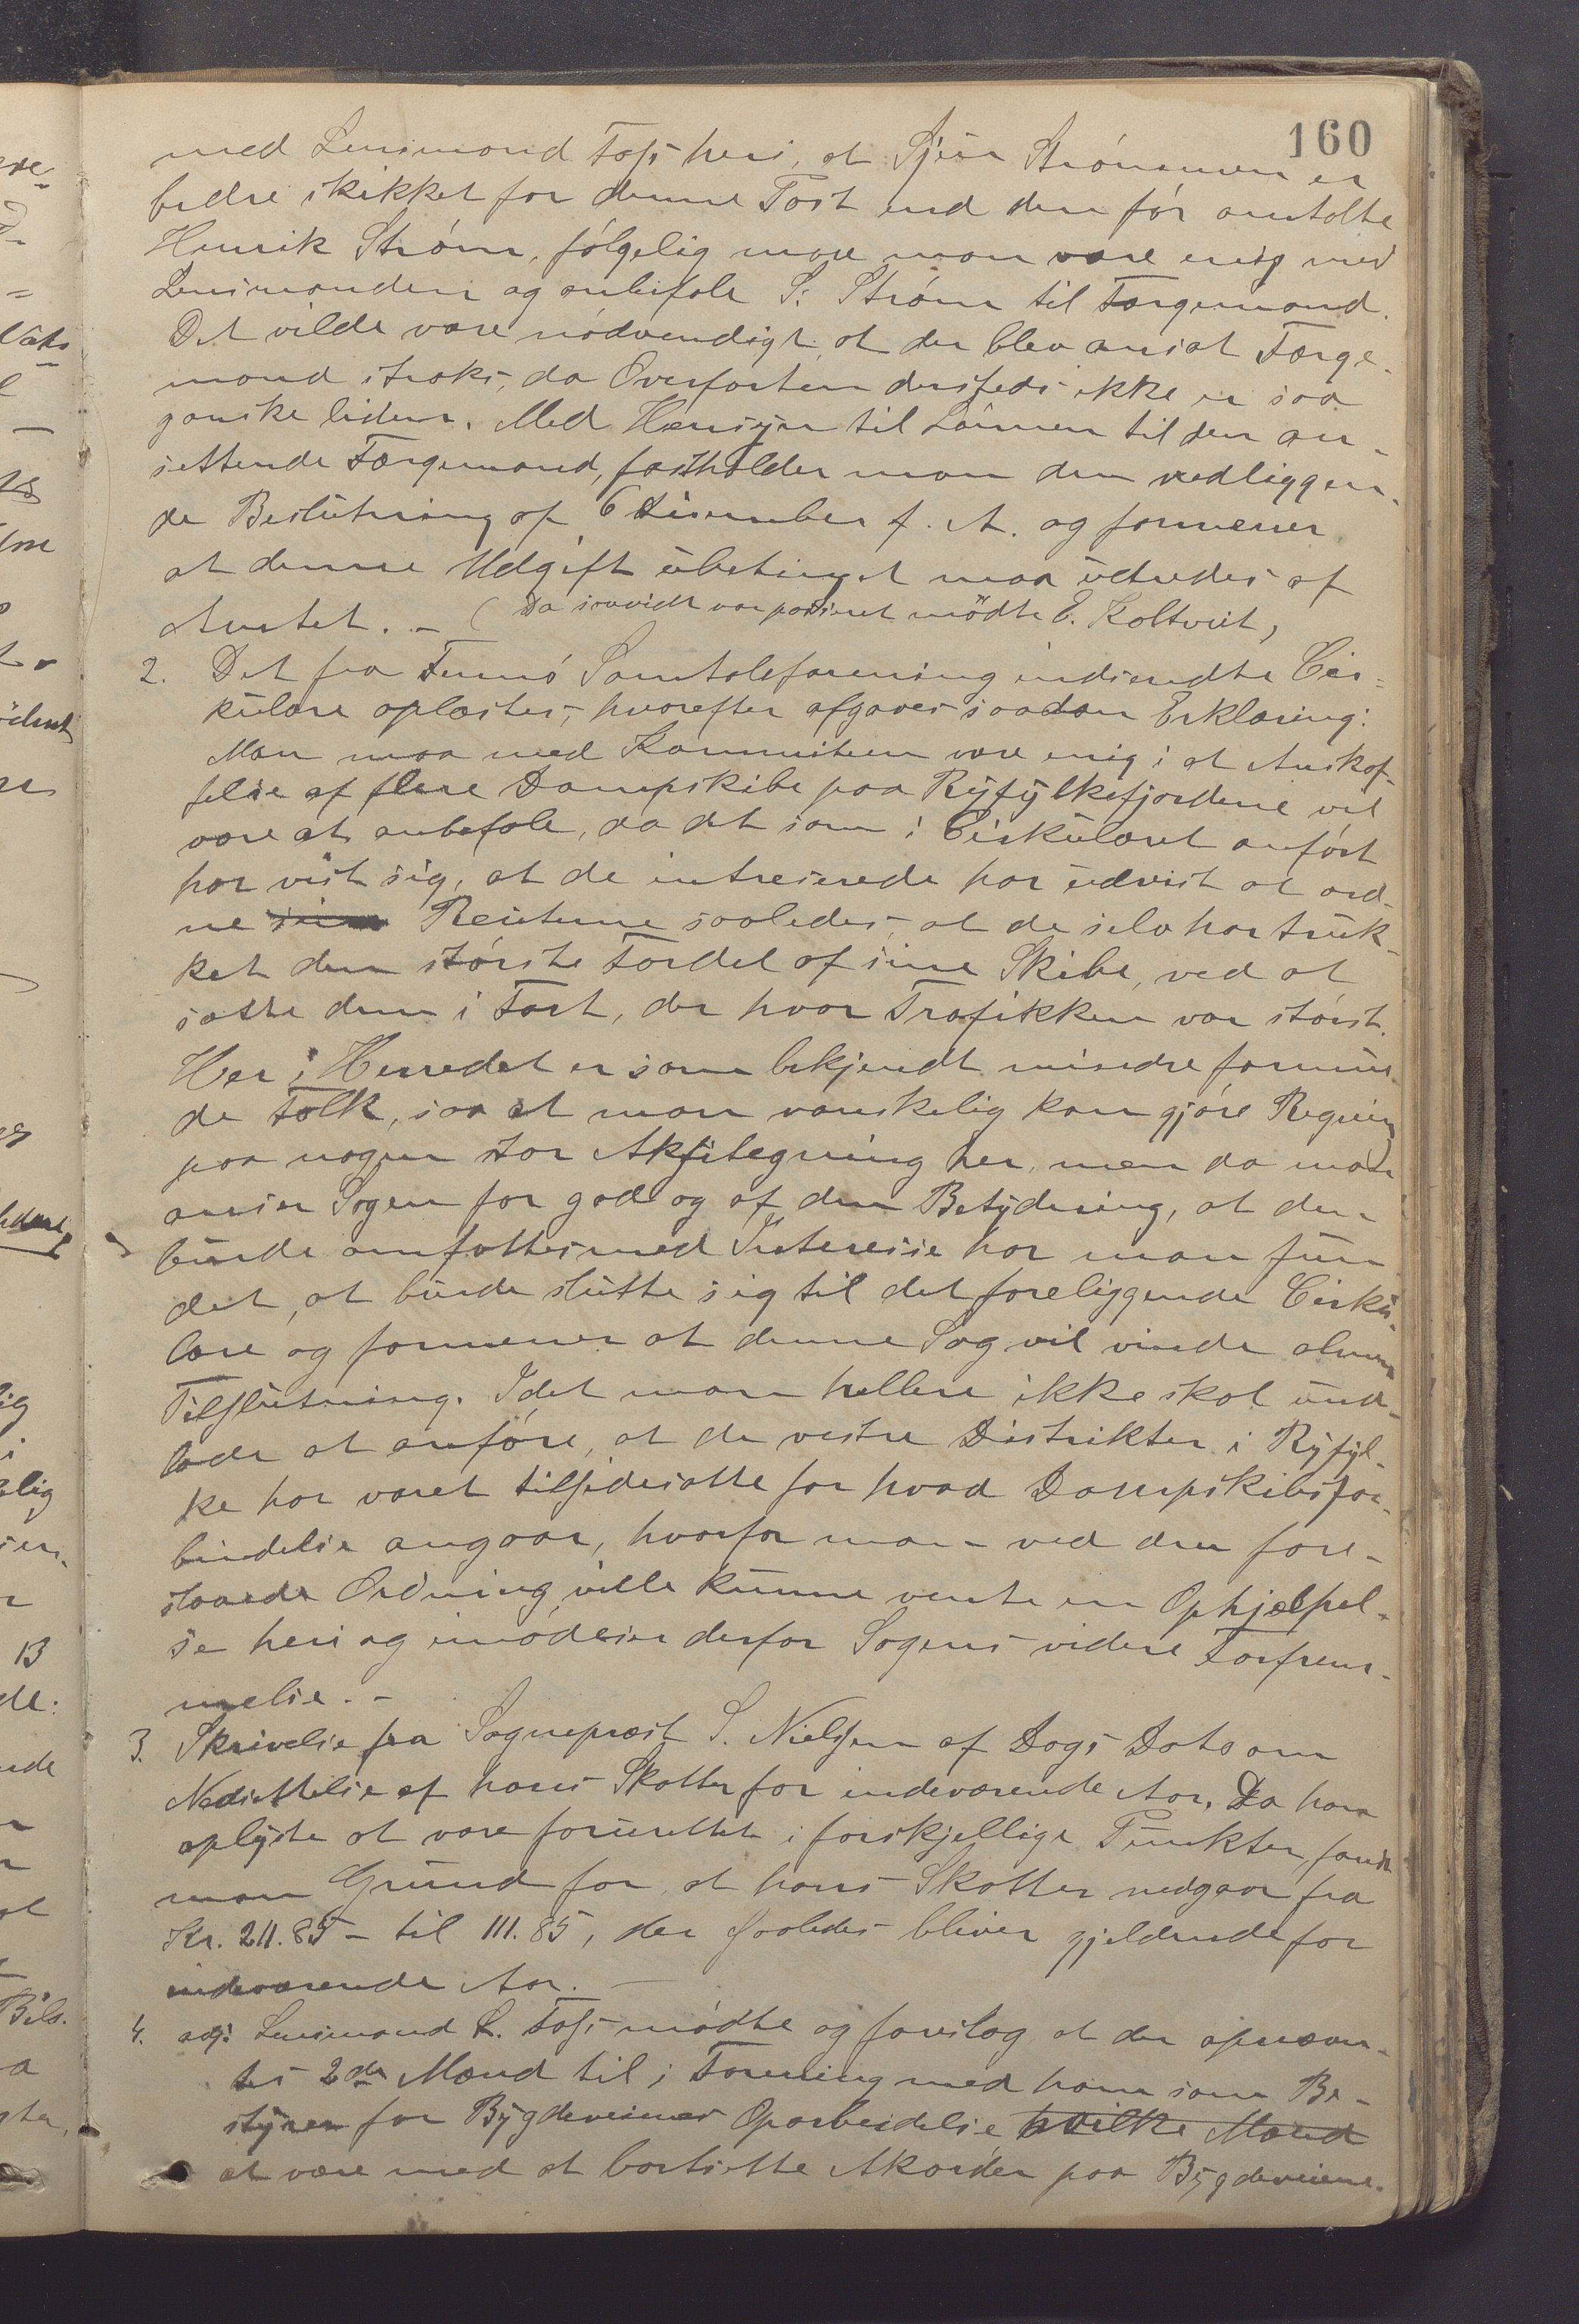 160
med Lensmand Tofs heri, at Sjúr Strömmen er
bedre skikket for denne Post end den för omtalte
Henrik Ström, fölgelig maa man være enig med
Lensmanden og anbefale S: Ström til Færgemand.
Det vilde være nödvendigt, at der blev ansat Færge-
mand straks, da Overfarten dersteds ikke er saa
ganske liden. Med Hensyn til Lönnen til den an-
settende Færgemand, fastholder man den vedliggen-
de Beslutning af 6 Desember f. A. og formener
at denne Udgift ubetinget maa udredes af
Amtet. – (Da saavidt var passeret mödte E. Koltveit,
2. Det fra Finnö Samtaleforening indsendte Cir=
kulære oplæstes, hvorefter afgaves saadan Erklæring:
Man maa med Kommiteen være enig i at Anskaf-
felse af flere Dampskibe paa Ryfylkefjordene vil
være at anbefale, da det som i Cirkulæret anfört
har vist sig, at de intreserede har udvist at ord-
ne Reuterne saaledes, at de selv har truk-
ket den störste Fordel af sine Skibe, ved at
sætte dem i Fart, der hvor Trafikken var störst.
Her i Herredet er som bekjendt mindre formuen-
de Folk, saa at man vanskelig kan gjöre Regning
paa nogen stor Aksietegning her, men da man
anser Sagen for god og af den Betydning, at den
burde omfattes med Interesse har man fun
det, at burde slutte sig til det foreliggende Cirku-
lære og formener at denne Sag vil vinde almen
Tilslutning. Idet man hellere ikke skal und-
lade at anföre, at de vestre Distrikter i Ryfyl-
ke har været tilsidesatte for hvad Dampskibsfor-
bindelse angaar, hvorfor man ved den fore-
slaaede Ordning ville kunne vente en Ophjælpel-
se heri og imödeser derfor Sagens videre Forfrem-
melse. –
3. Skrivelse fra Sogneprest S. Nielsen af Dags Dato om
Nedsettelse af hans Skatter for indeværende Aar. Da han
oplyste at være forurettet i forskjellige Punkter, fandt
man Grund for, at hans Skatter nedgaar fra
Kr. 211.85 – til 111.85, der saaledes bliver gjeldende for
indeværende Aar. —
4. Lensmand L. Tofs mödte og foreslog at der opnævn-
tes 2de Mænd til i Forening med ham som Be-
styrer for Bygdeveienes Oparbeidelse hvilke Mænd
at være med at bortsette Akorder paa Bygdeveiene.